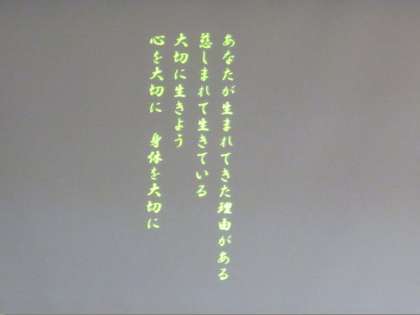 あなたが生まれてきた理由がある
慈しまれて生きている
大切に生きよう
心を大切に　身体を大切に